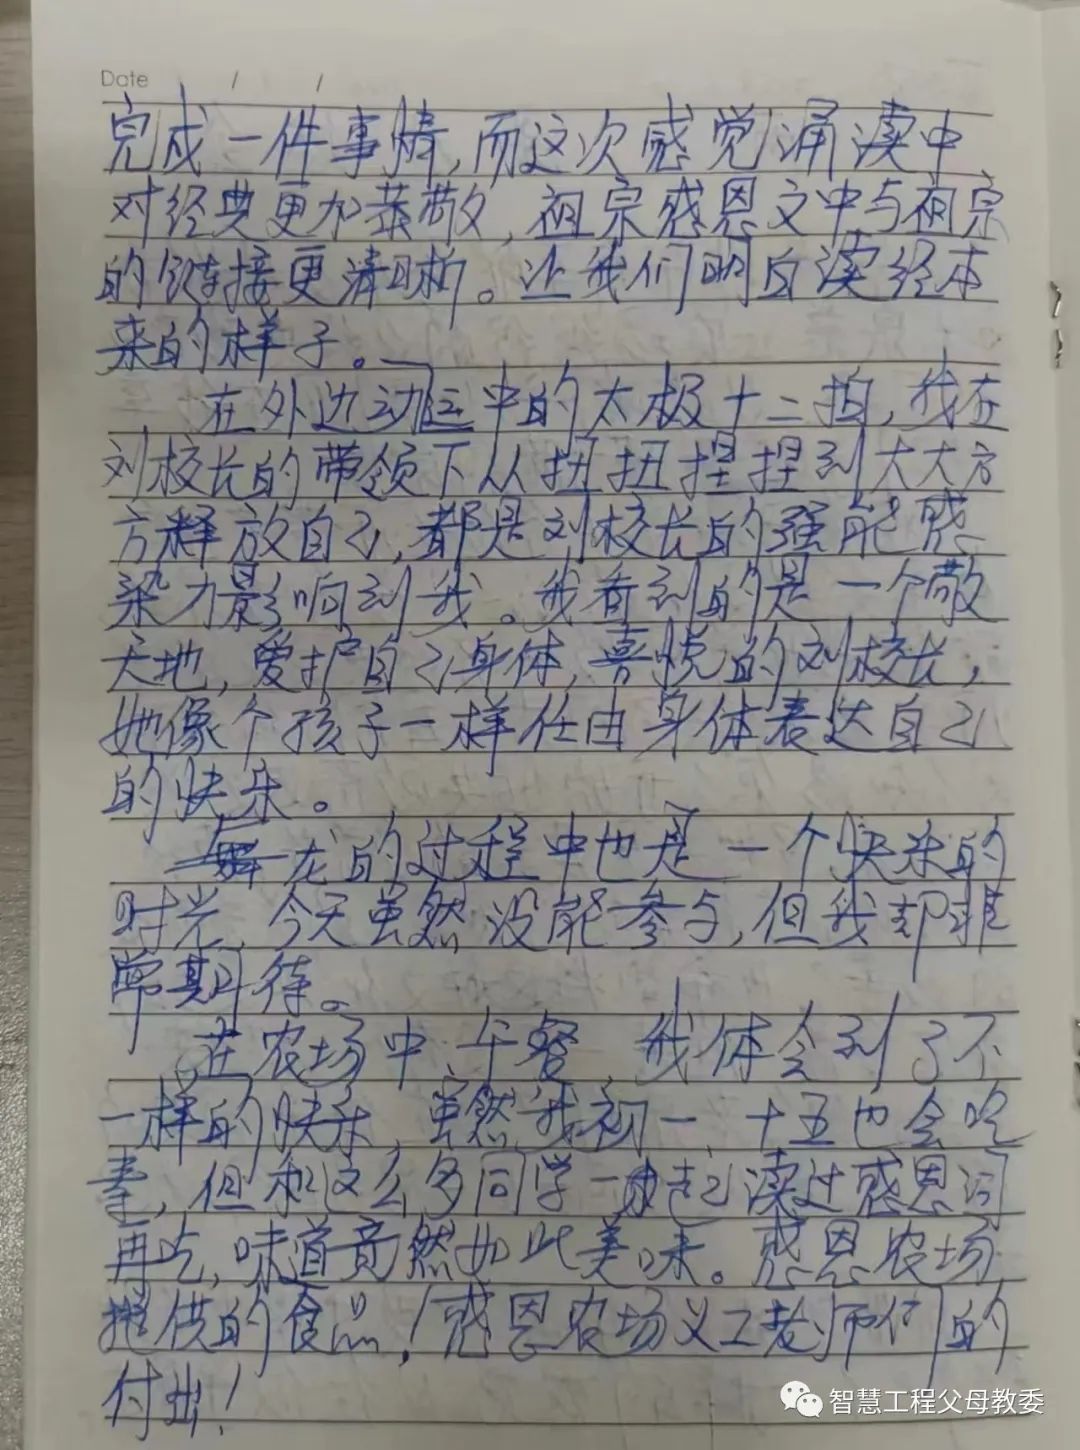 Date / /
完成一件事情,而这次感觉诵读中
对经典更加恭敬,祖宗感恩文中与祖宗
的链接更清晰。让我们明白读经本
来的样子。
在外边动运中的太极十二拍,我在
刘校长的带领下从扭扭捏捏到大大方
方释放自己,都是刘校长的强能感
染力影响到我。我看到的是一个敬
天地,爱护自己身体,喜悦的刘校长,
她像个孩子一样任由身体表达自己
的快乐。
舞龙的过程中也是一个快乐的
时光,今天虽然没能参与,但我却非
常期待。
在农场中午餐,我体会到了不
一样的快乐,虽然我初一、十五也会吃
素,但和这么多同学一起读过感恩词
再吃,味道竟然如此美味。感恩农场
提供的食品!感恩农场义工老师们的
付出!
智慧工程父母教委